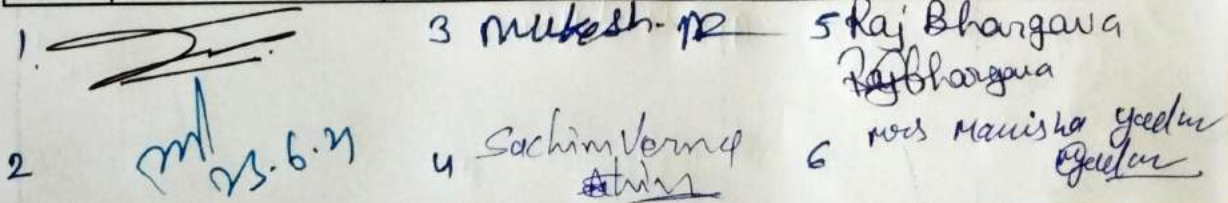 1.
3 Mukesh
5 Raj Bhargava
Raj Bhargava
2
23.6.21
4 Sachim Verma
6 Mrs Manisha Yadav
Yadav